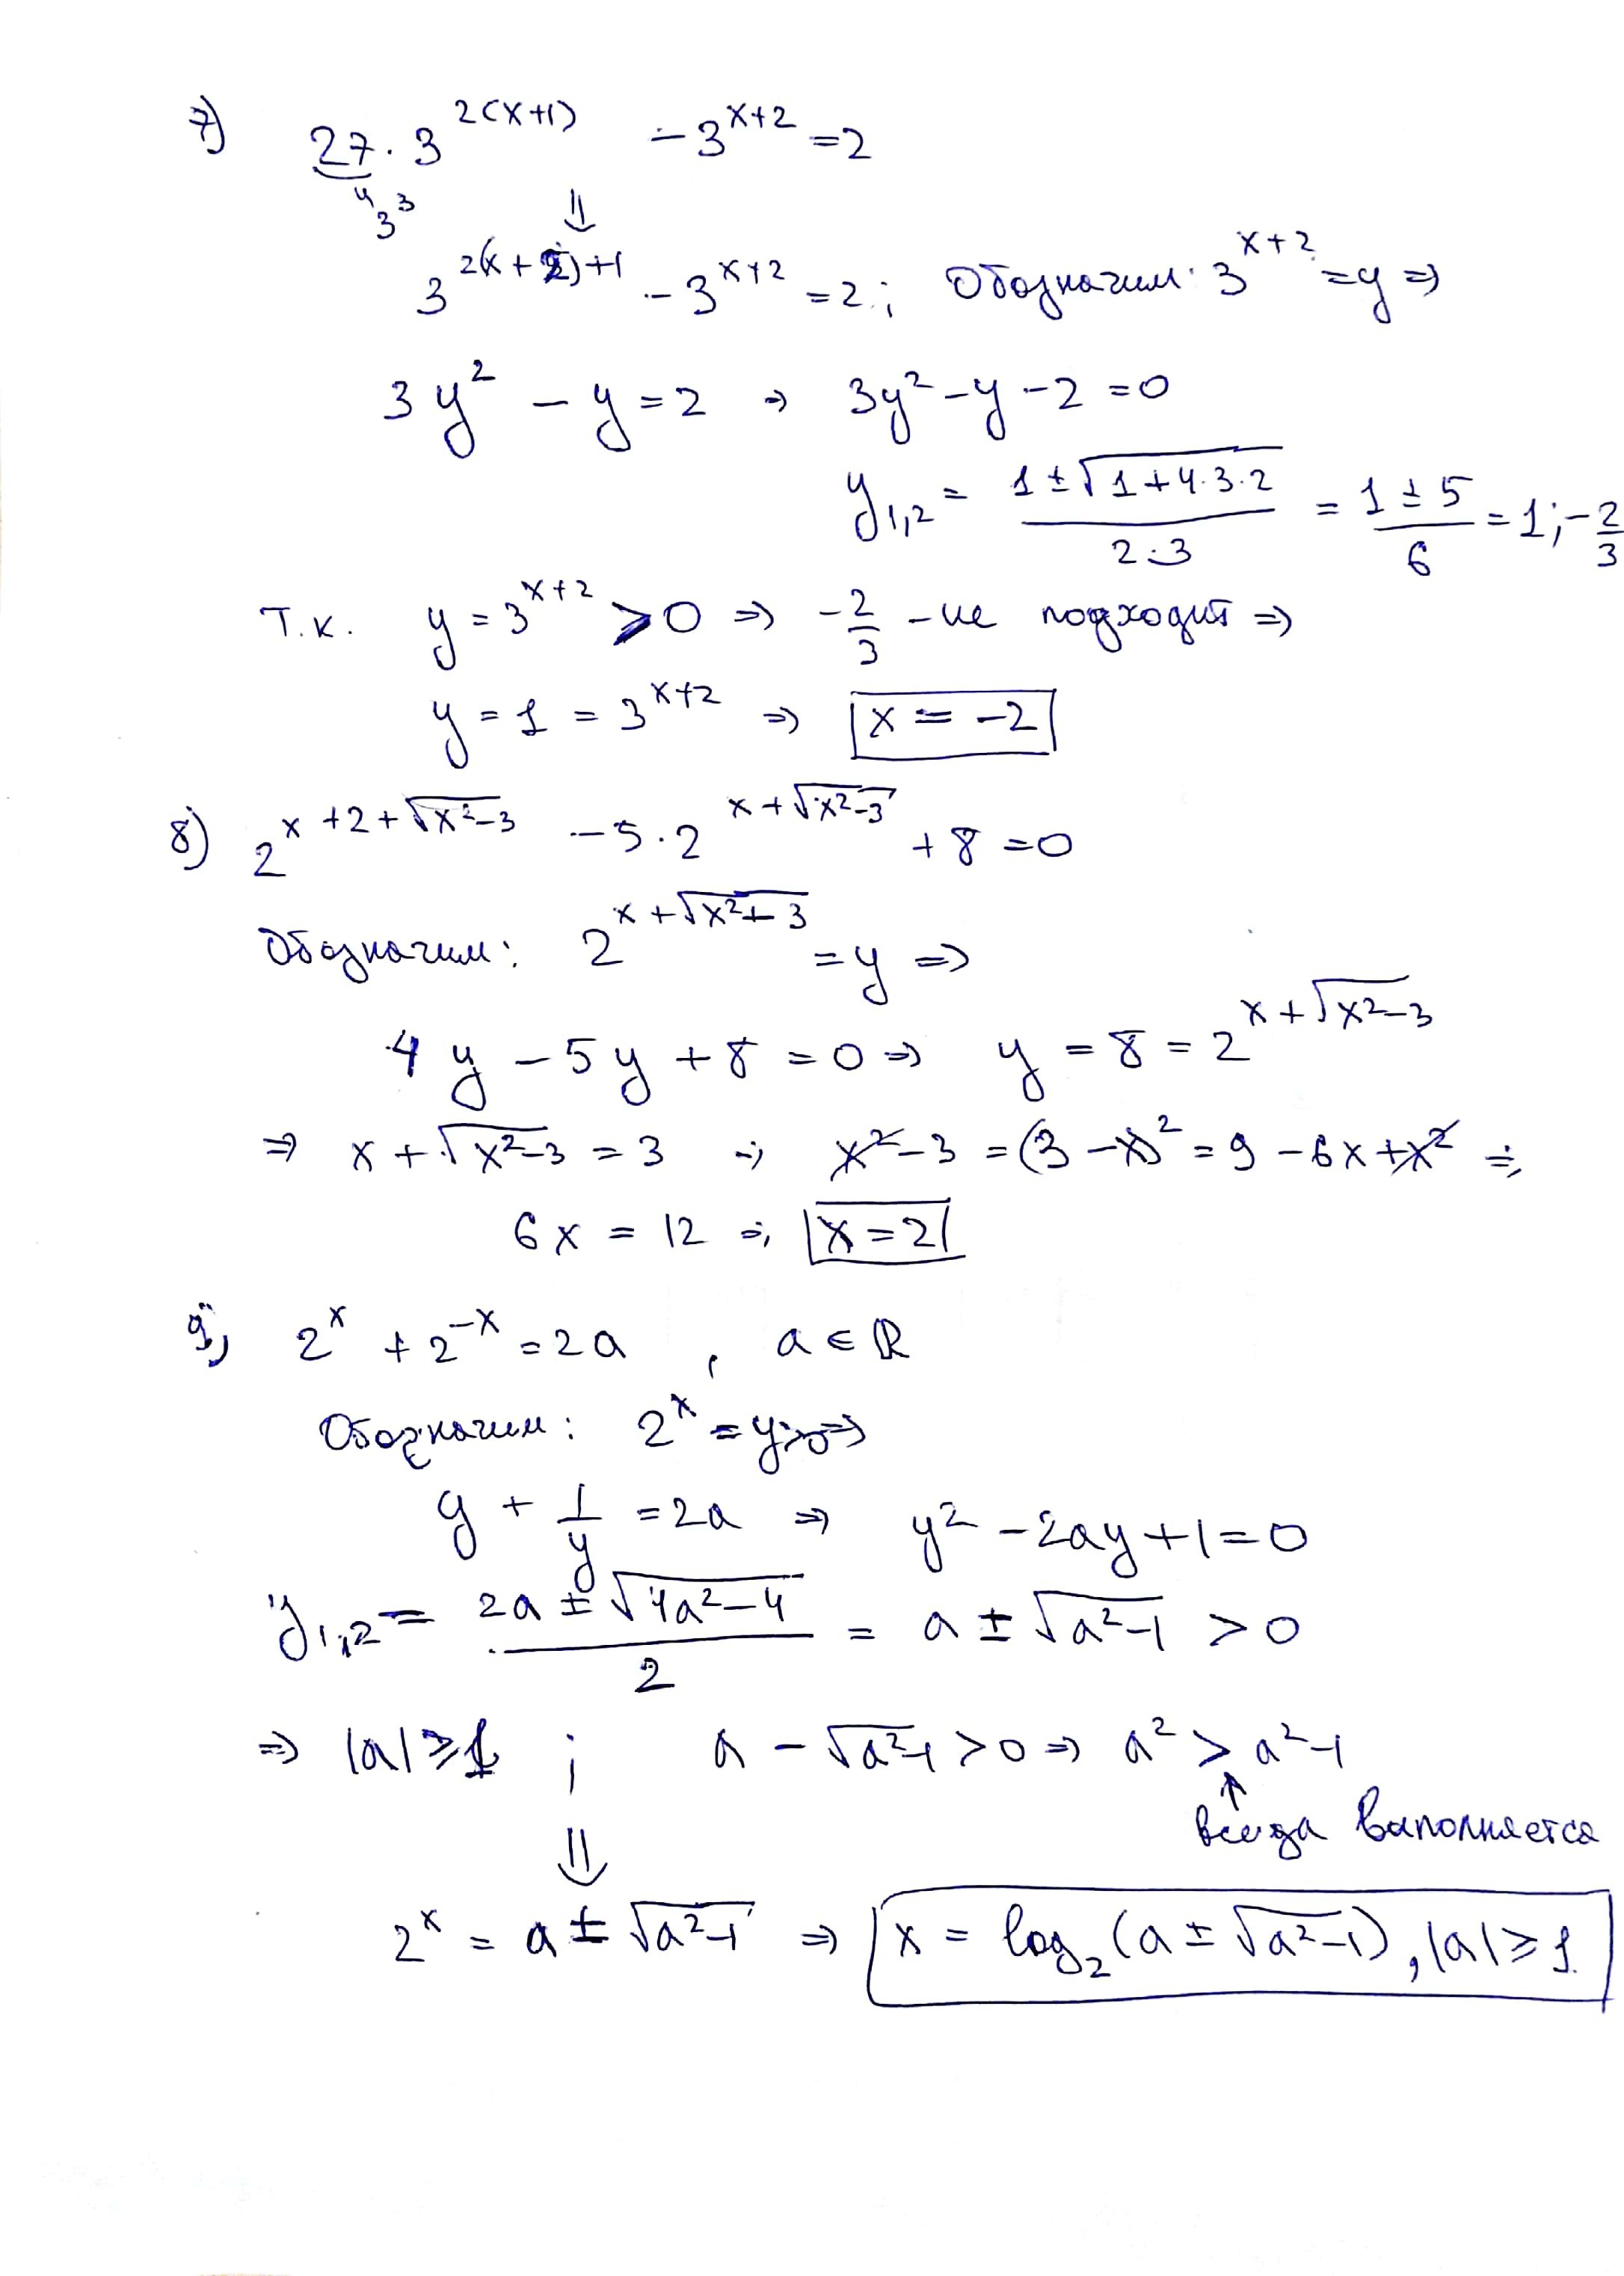 7) 27 · 3^{2(x+1)} - 3^{x+2} = 2
3^3 ⇓
3^{2(x+2)+1} - 3^{x+2} = 2; Обозначим: 3^{x+2} = y ⇒
3y^2 - y = 2 ⇒ 3y^2 - y - 2 = 0
y_{1,2} = (1 ± √(1+4·3·2))/(2·3) = (1 ± 5)/6 = 1; -2/3
Т.к. y = 3^{x+2} > 0 ⇒ -2/3 - не подходит ⇒
y = 1 = 3^{x+2} ⇒ x = -2
8) 2^{x+2+√(x^2-3)} - 5·2^{x+√(x^2-3)} + 8 = 0
Обозначим: 2^{x+√(x^2+3)} = y ⇒
4y - 5y + 8 = 0 ⇒ y = 8 = 2^{x+√(x^2-3)}
⇒ x + √(x^2-3) = 3 ⇒ x^2 - 3 = (3-x)^2 = 9 - 6x + x^2 ⇒
6x = 12 ⇒ x = 2
9) 2^x + 2^{-x} = 2a, a ∈ ℝ
Обозначим: 2^x = y > 0 ⇒
y + 1/y = 2a ⇒ y^2 - 2ay + 1 = 0
y_{1,2} = (2a ± √(4a^2-4))/2 = a ± √(a^2-1) > 0
⇒ |a| ≥ 1; a - √(a^2-1) > 0 ⇒ a^2 > a^2-1
⇓ ↑ всегда выполняется
2^x = a ± √(a^2-1) ⇒ x = log_2(a ± √(a^2-1)), |a| ≥ 1.